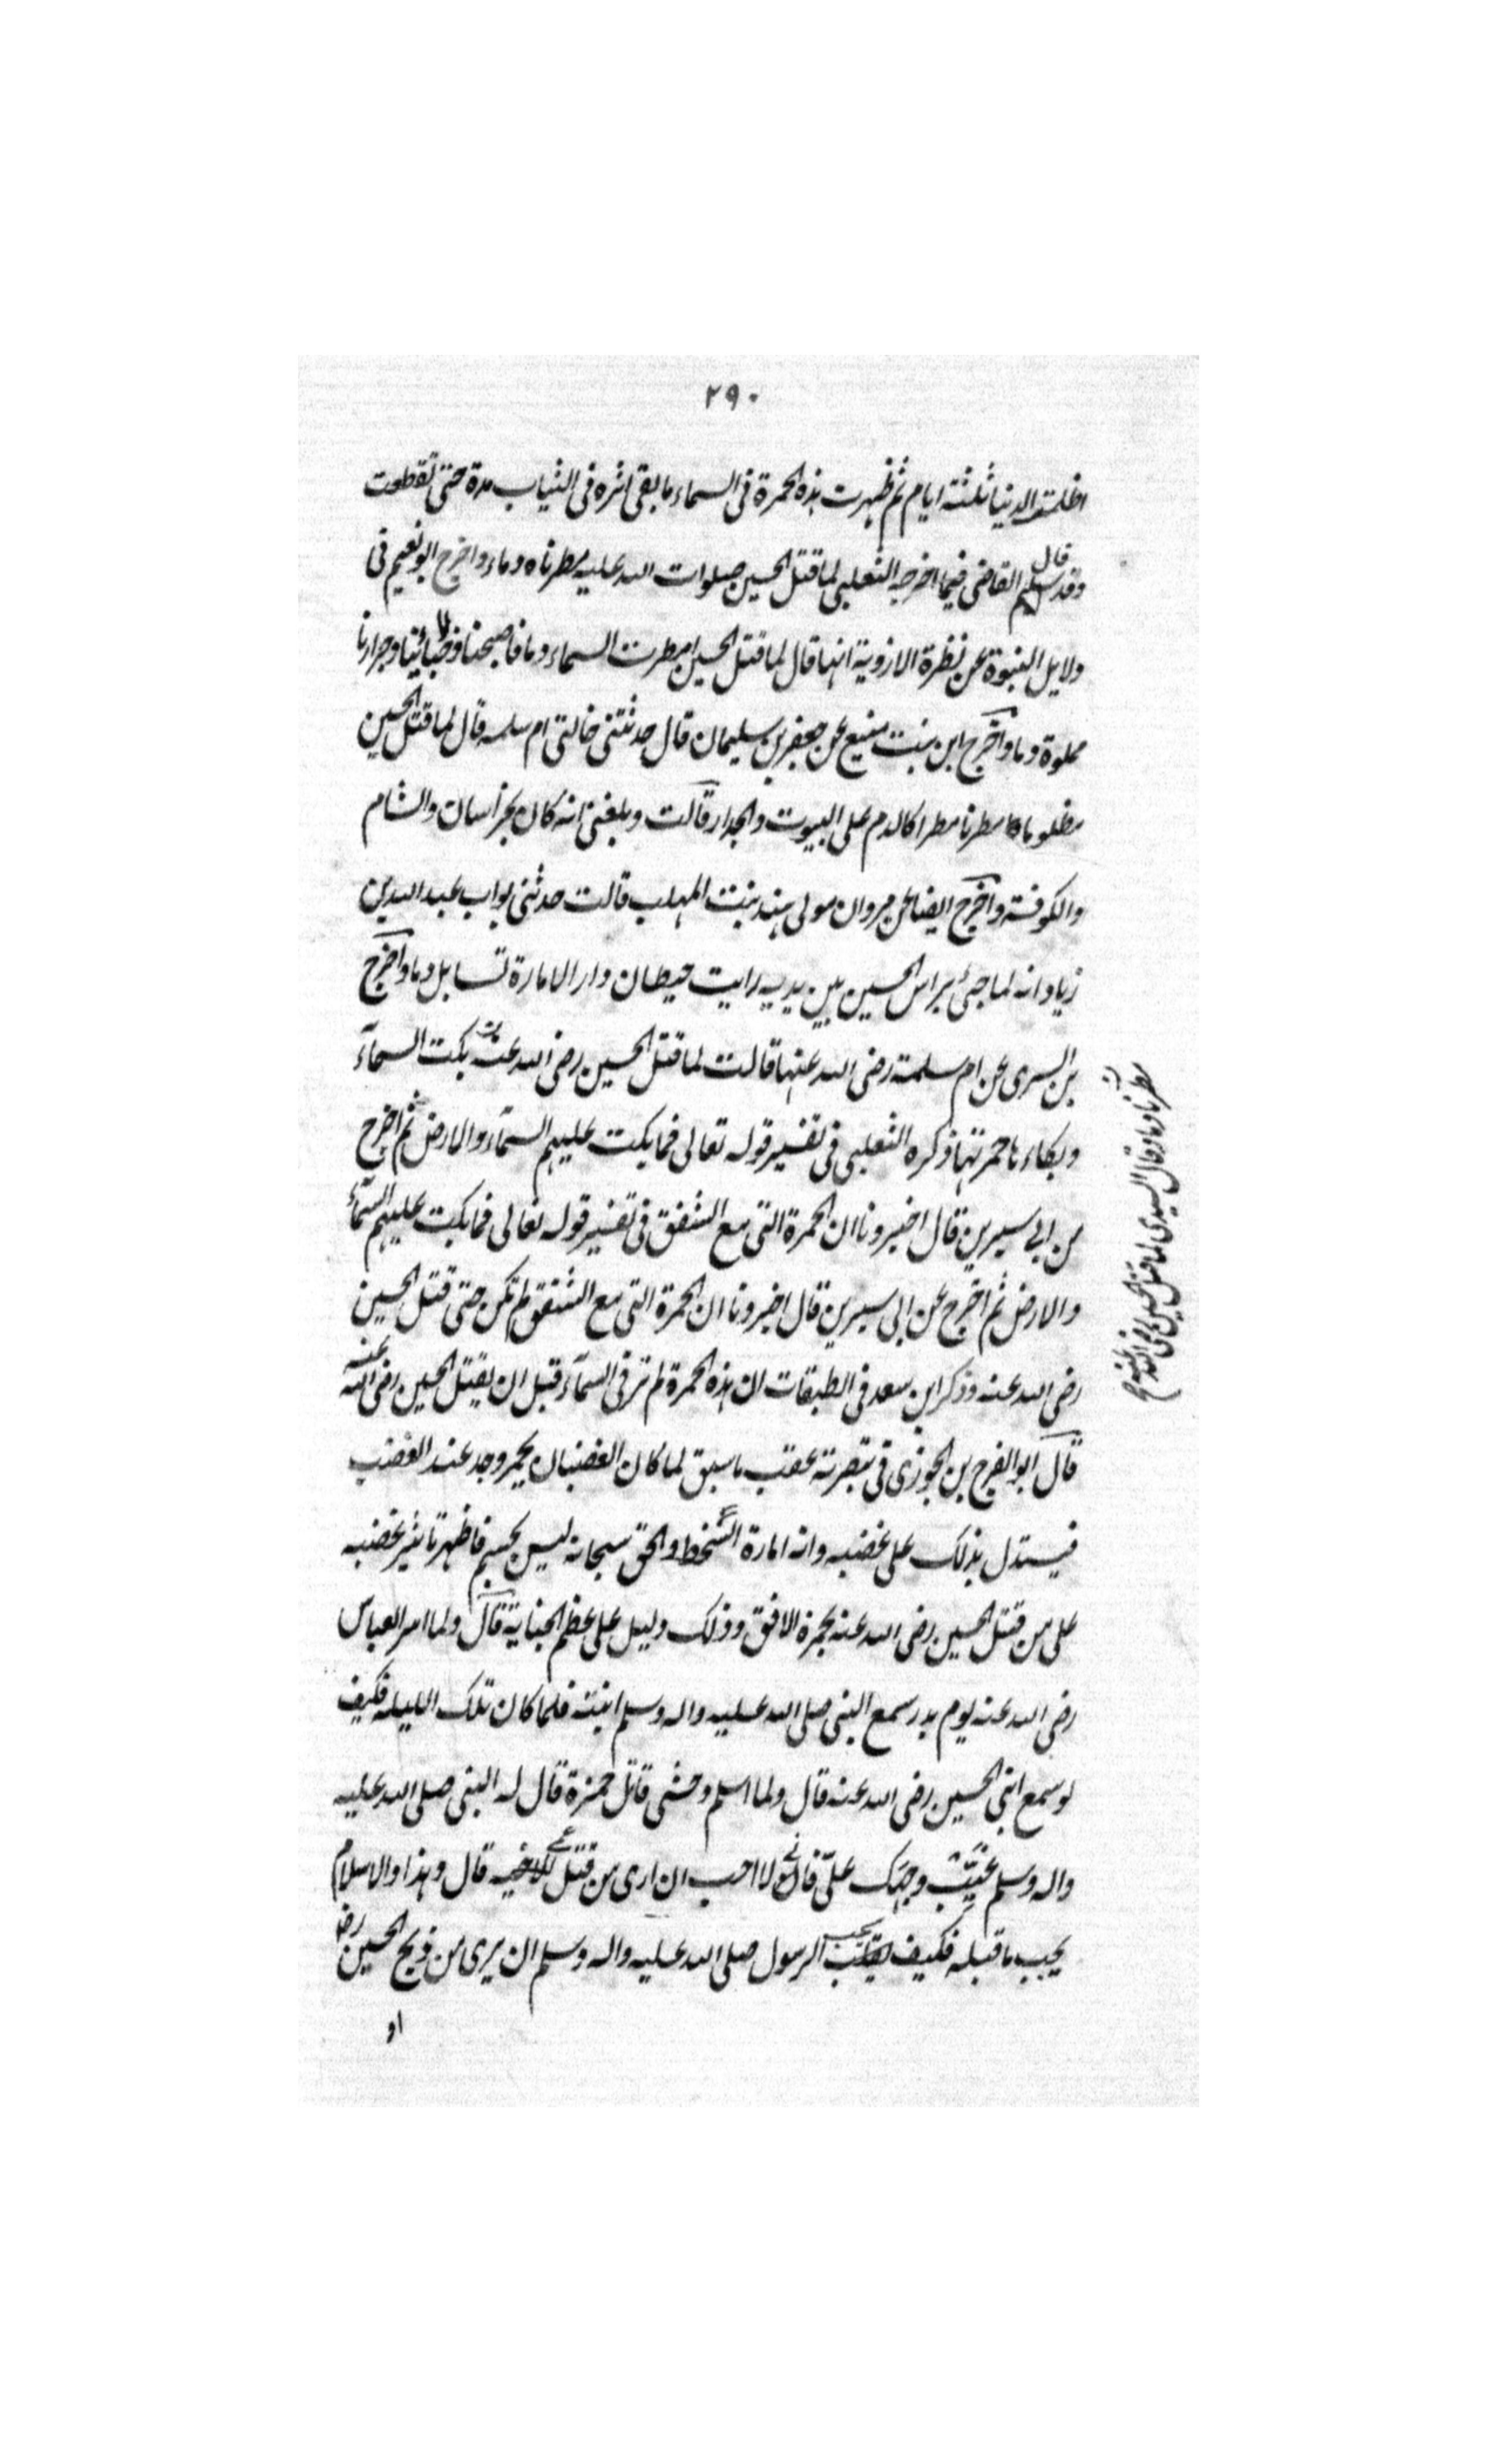 ٢٩٠
اظلمت الدنيا ثلثة ايام ثم ظهرت هذه الحمرة فى السماء ما بقى اثره فى الثياب مدة حتى تقطعت
وقد قال سليم القاضى فيما اخرجه الثعلبى لما قتل الحسين صلوات الله عليه مطرناه دماء واخرج ابو نعيم فى
دلايل النبوة عن نظرة الازدية انها قال لما قتل الحسين امطرت السماء دما فاصبحنا وجرارنا
مملوة دما واخرج ابن بنت منيع عن جعفر بن سليمان قال حدثتنى خالتى ام سلمه قال لما قتل الحسين
مظلوما مطرنا مطرا كالدم على البيوت والجدار قالت وبلغنى انه كان بخراسان والشام
والكوفة واخرج ايضا عن مروان مولى هند بنت المهلب قالت حدثنى بواب عبد الله بن
زياد انه لما جئ براس الحسين بين يديه رايت حيطان دار الامارة تسايل دما واخرج
بن السرى عن ام سلمة رضى الله عنها قالت لما قتل الحسين رضى الله عنه بكت السمآء
وبكاءها حمرتها ذكره الثعلبى فى تفسير قوله تعالى فما بكت عليهم السمآء والارض ثم اخرج
من ابى سيرين قال اخبرونا ان الحمرة التى مع الشفق فى تفسير قوله تعالى فما بكت عليهم السمآء
والارض ثم اخرج عن ابى سيرين قال اخبرونا ان الحمرة التى مع الشفق لم تكن حتى قتل الحسين
رضى الله عنه وذكر ابن سعد فى الطبقات ان هذه الحمرة لم تر فى السمآء قبل ان يقتل الحسين رضى الله عنه
قال ابو الفرج بن الجوزى فى تبصرته عقب ما سبق لما كان الغضبان يحمر وجد عند الغضب
فيستدل بذلك على غضبه وانه امارة السخط والحق سبحانه ليس بجسم فاظهر تاثير غضبه
على من قتل الحسين رضى الله عنه بحمرة الافق وذلك دليل على عظم الجناية قال ولما اسر العباس
رضى الله عنه يوم بدر سمع النبى صلى الله عليه واله وسلم انينه فلما كان تلك الليله فكيف
لو سمع انين الحسين رضى الله عنه قال ولما اسلم وحشى قاتل حمزة قال له النبى صلى الله عليه
واله وسلم غيّب وجهك علىّ فانى لا احب ان ارى من قتل قال وهذا والاسلام
يجب ما قبله فكيف يحب الرسول صلى الله عليه واله وسلم ان يرى من ذبح الحسين رض
او
مطرنا دما وقال السدى لما قتل الحسين رضى الله عنه